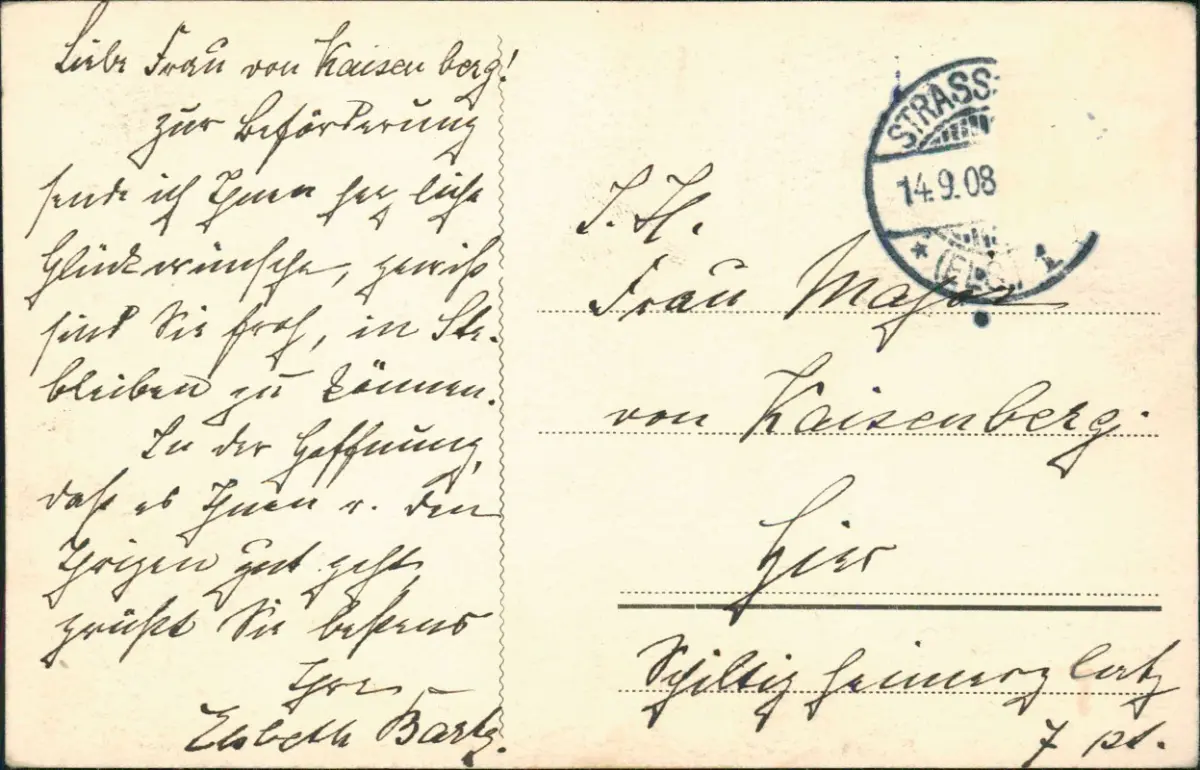 Liebe Frau von Kaisenberg!
zur Beförderung
sende ich Ihnen herzliche
Glückwünsche, gewiß
sind Sie froh, in Str.
bleiben zu können.
In der Hoffnung,
daß es Ihnen u. den
Ihrigen gut geht,
grüßt Sie bestens
Ihre
Elsbeth Bartz.
STRASS
14.9.08
* (ELS.) 1
Frau Major
von Kaisenberg.
Hier
Schiltigheimerplatz
7 pt.